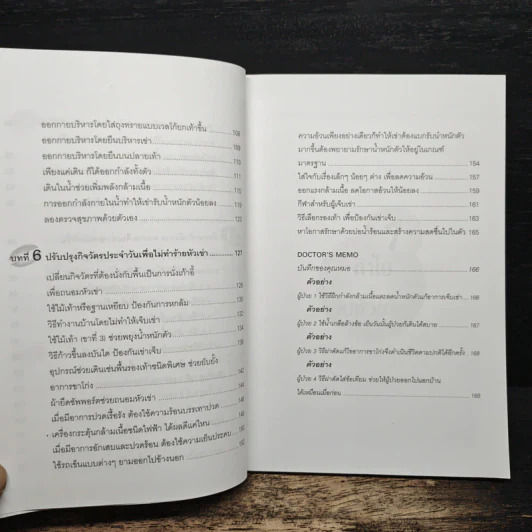 ออกกายบริหารโดยใส่ถุงทรายแบบเวลโก้ยกเท้าขึ้น 108
ออกกายบริหารโดยยืนบริหารเข่า 109
ออกกายบริหารโดยยืนบนปลายเท้า 111
เพียงแค่เดิน ก็ได้ออกกำลังทั้งตัว 113
เดินในน้ำช่วยเพิ่มพลังกล้ามเนื้อ 115
การออกกำลังกายในน้ำทำให้เข่ารับน้ำหนักตัวน้อยลง 119
ลองตรวจสุขภาพด้วยตัวเอง 123
บทที่ 6 ปรับปรุงกิจวัตรประจำวันเพื่อไม่ทำร้ายหัวเข่า 127
เปลี่ยนกิจวัตรที่ต้องนั่งกับพื้นเป็นการนั่งเก้าอี้
เพื่อถนอมหัวเข่า 128
ใช้ไม้เท้าหรือฐานเหยียบ ป้องกันการหกล้ม
วิธีทำงานบ้านโดยไม่ทำให้เจ็บเข่า
ใช้ไม้เท้า (ขาที่ 3) ช่วยพยุงน้ำหนักตัว
วิธีก้าวขึ้นลงบันได ป้องกันเข่าเจ็บ
อุปกรณ์ช่วยเดินเช่นพื้นรองเท้าชนิดพิเศษ ช่วยยับยั้ง
อาการขาโก่ง
ผ้ายืดซัพพอร์ตช่วยถนอมหัวเข่า
เมื่อมีอาการปวดเรื้อรัง ต้องใช้ความร้อนบรรเทาปวด
เครื่องกระตุ้นกล้ามเนื้อชนิดไฟฟ้า ได้ผลดีแค่ไหน
เมื่อมีอาการอักเสบและปวดร้อน ต้องใช้ความเย็นประคบ
ใช้รถเข็นแบบต่างๆ ยามออกไปข้างนอก
ความอ้วนเพียงอย่างเดียวก็ทำให้เข่าต้องแบกรับน้ำหนักตัว
มากขึ้นต้องพยายามรักษาน้ำหนักตัวให้อยู่ในเกณฑ์
มาตรฐาน 154
ใส่ใจกับเรื่องเล็กๆ น้อยๆ ต่าง เพื่อลดความอ้วน 157
ออกแรงกล้ามเนื้อ ลดโอกาสอ้วนให้น้อยลง 159
กีฬาสำหรับผู้เจ็บเข่า 161
วิธีเลือกรองเท้า เพื่อป้องกันเข่าเจ็บ 163
หาโอกาสรักษาด้วยบ่อน้ำร้อนและสร้างความสดชื่นไปในตัว 165
DOCTOR'S MEMO
บันทึกของคุณหมอ 166
ตัวอย่าง
ผู้ป่วย 1 ใช้วิธีฝึกกำลังกล้ามเนื้อและลดน้ำหนักตัวแก้อาการเจ็บเข่า 166
ตัวอย่าง
ผู้ป่วย 2 ใช้น้ำกดสื่อล้างข้อ เย็นวันนั้นผู้ป่วยก็เดินได้สบาย 167
ตัวอย่าง
ผู้ป่วย 3 วิธีผ่าตัดแก้ไขอาการขาโก่งจึงดำเนินชีวิตตามปรกติได้อีกครั้ง 168
ตัวอย่าง
ผู้ป่วย 4 วิธีผ่าตัดใส่ข้อเทียม ช่วยให้ผู้ป่วยออกไปนอกบ้าน
ได้เหมือนเมื่อก่อน 169